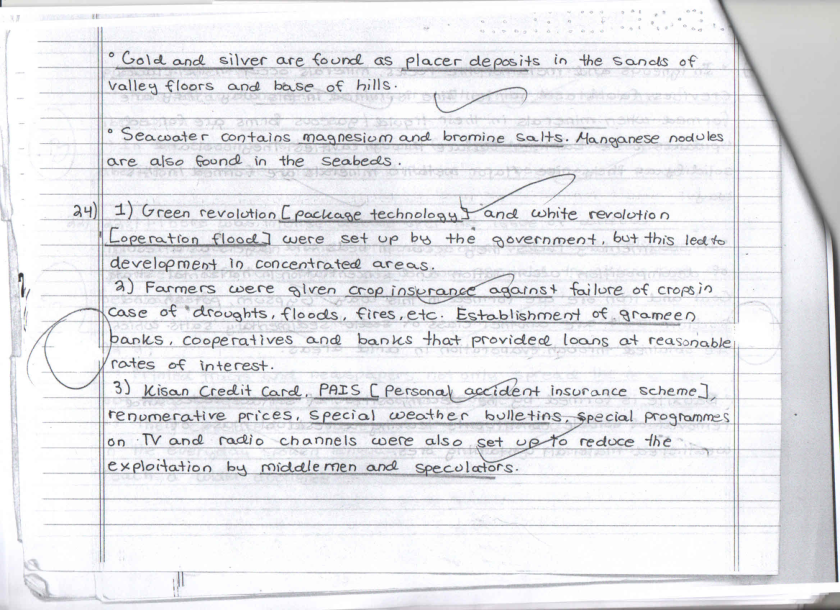 ° Gold and silver are found as placer deposits in the sands of
valley floors and base of hills.
° Seawater contains magnesium and bromine salts. Manganese nodules
are also found in the seabeds.
24) 1) Green revolution [package technology] and white revolution
[operation flood] were set up by the government, but this led to
development in concentrated areas.
2) Farmers were given crop insurance against failure of crops in
case of droughts, floods, fires, etc. Establishment of grameen
banks, cooperatives and banks that provided loans at reasonable
rates of interest.
3) Kisan Credit Card, PAIS [Personal accident insurance scheme],
renumerative prices, special weather bulletins, special programmes
on TV and radio channels were also set up to reduce the
exploitation by middlemen and speculators.